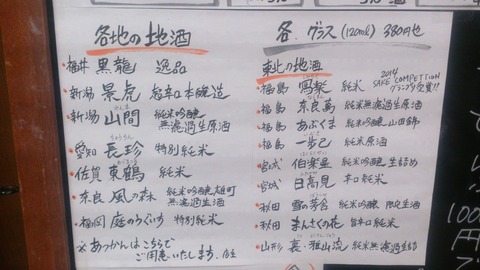 各地の地酒
福井 黒龍 逸品
新潟 景虎 超辛口本醸造
新潟 山間 純米吟醸 無濾過生原酒
やんま
愛知 長珍 特別純米
ちょうちん
佐賀 東鶴 純米
奈良 風の森 純米吟醸 雄町 無濾過生原酒
福岡 庭のうぐいす 特別純米
※あつかんはこちらで
ご用意いたします。店主
各、グラス(120ml) 380円也
東北の地酒
福島 鳳楽 純米 2014 SAKE COMPETITION グランプリ受賞!!
福島 奈良萬 純米無濾過生原酒
福島 あぶくま 純米吟醸 山田錦
福島 一歩己 純米原酒
宮城 伯楽星 純米吟醸 生詰め
宮城 日高見 辛口純米
秋田 雪の茅舎 純米吟醸 限定生酒
秋田 まんさくの花 旨辛口純米
山形 裏・雅山流 純米無濾過生詰